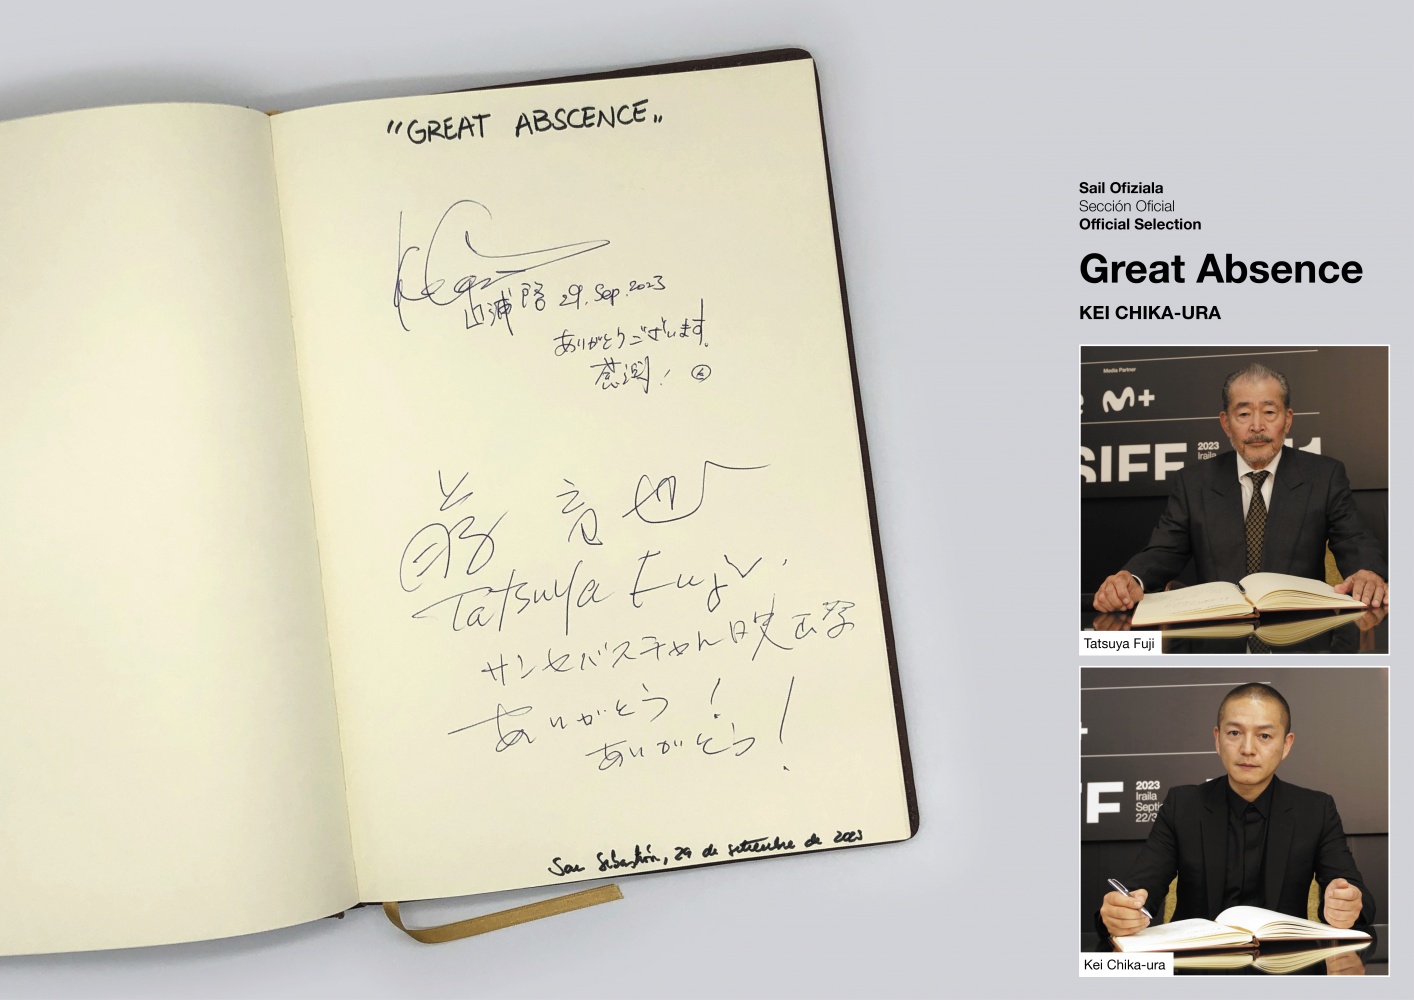 "GREAT ABSCENCE"
近浦 啓 29. Sep. 2023
ありがとうございます。
感謝!
藤 竜也
Tatsuya Fuji.
サンセバスチャン映画祭
ありがとう!
ありがとう!
San Sebastián, 29 de setiembre de 2023
Sail Ofiziala
Sección Oficial
Official Selection
Great Absence
KEI CHIKA-URA
Media Partner
M+
SIFF 2023
Iraila
Tatsuya Fuji
F 2023
Iraila
Septi
22/3
Kei Chika-ura